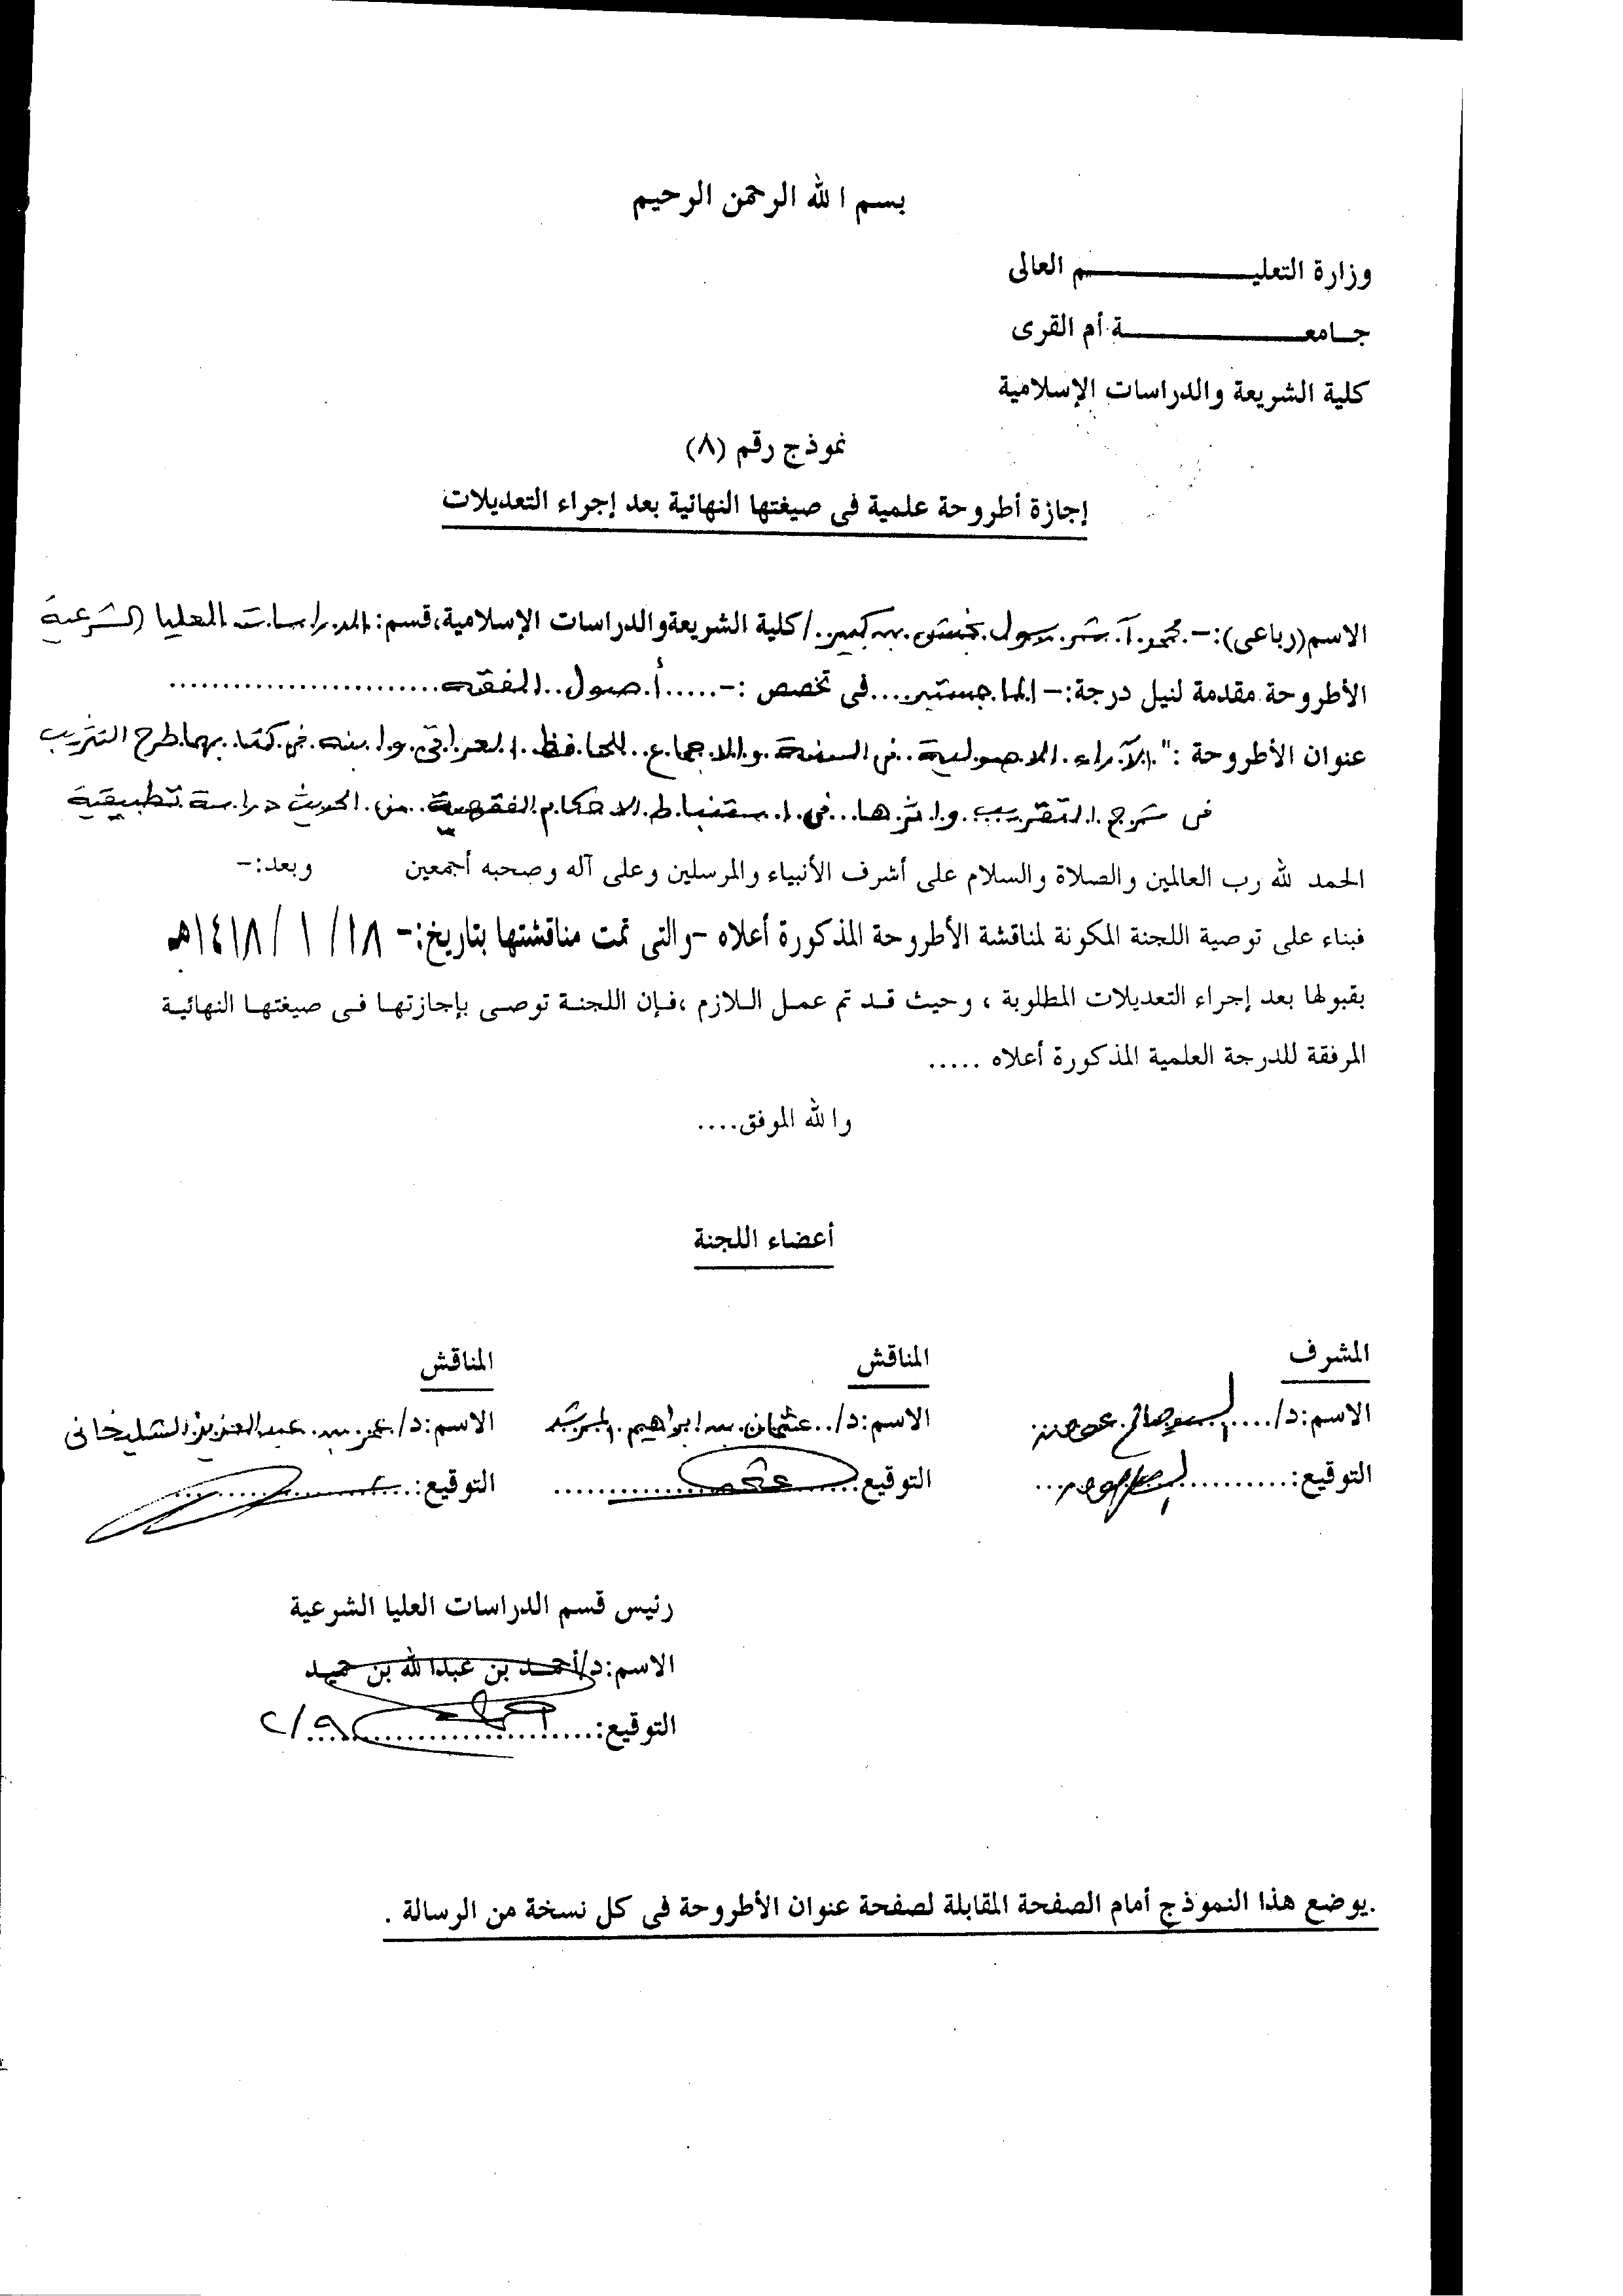 بسم الله الرحمن الرحيم
وزارة التعليـــــــم العالى
جـامعـــــــة أم القرى
كلية الشريعة والدراسات الإسلامية
نموذج رقم (٨)
إجازة أطروحة علمية فى صيغتها النهائية بعد إجراء التعديلات
الاسم(رباعى):- محمد آ رسول بخش بن كبير /كلية الشريعة والدراسات الإسلامية، قسم: الدراسات العليا الشرعية
الأطروحة مقدمة لنيل درجة:- الماجستير....فى تخصص :-.....أصول..الفقه.........................
عنوان الأطروحة :" الآراء الاصولية فى السنة والاجماع للحافظ العراقى وابنه فى كتابهما طرح التثريب
فى شرح التقريب وأثرها فى استنباط الاحكام الفقهية من الحديث دراسة تطبيقية
الحمد لله رب العالمين والصلاة والسلام على أشرف الأنبياء والمرسلين وعلى آله وصحبه أجمعين وبعد:-
فبناء على توصية اللجنة المكونة لمناقشة الأطروحة المذكورة أعلاه -والتى تمت مناقشتها بتاريخ:- ١٨/ ١ /١٤١٨هـ
بقبولها بعد إجراء التعديلات المطلوبة ، وحيث قـد تم عمـل الـلازم ،فـإن اللجنـة توصـى بإجازتهـا فـى صيغتهـا النهائيـة
المرفقة للدرجة العلمية المذكورة أعلاه .....
والله الموفق....
أعضاء اللجنة
المشرف المناقش المناقش
الاسم:د/..... الاسم:د/..عثمان بن ابراهيم المرشد الاسم:د/عمر بن عبدالعزيز الشليخانى
التوقيع:.......... التوقيع:.......... التوقيع:..........
رئيس قسم الدراسات العليا الشرعية
الاسم:د/أحمـد بن عبدالله بن حميـد
التوقيع:.......... ٢/٩
.يوضع هذا النموذج أمام الصفحة المقابلة لصفحة عنوان الأطروحة فى كل نسخة من الرسالة .